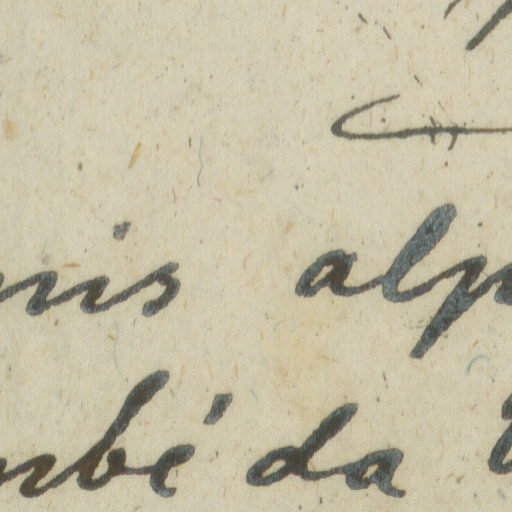 nis alp
mbé da